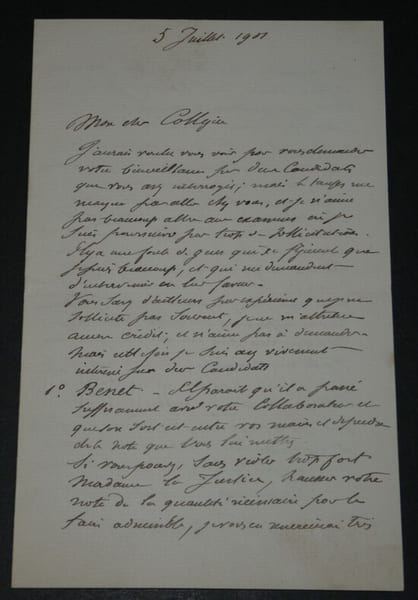 5 Juillet 1901
Mon cher Collègue
J'aurais voulu vous voir pour vous demander
votre bienveillance pour deux Candidats
que vous avez interrogés; mais le temps me
manque pour aller chez vous, et je n'aime
pas beaucoup aller aux examens où je
suis poursuivi par trop de sollicitations.
Il y a une foule de gens qui se figurent que
je puis beaucoup, et qui me demandent
d'intervenir en leur faveur.
Vous savez d'ailleurs par expérience que je ne
sollicite pas souvent, je ne m'attribue
aucun crédit; et n'aime pas à demander.
Mais cette fois je suis assez vivement
intéressé pour deux Candidats
1° Benet - Il paraît qu'il a passé
suffisamment avec votre Collaborateur et
que son sort est entre vos mains et dépendra
de la note que vous lui mettrez
Si vous pouvez, sans violer trop fort
Madame la Justice, hausser votre
note de la quantité nécessaire pour le
faire admissible, je vous en remercierai très